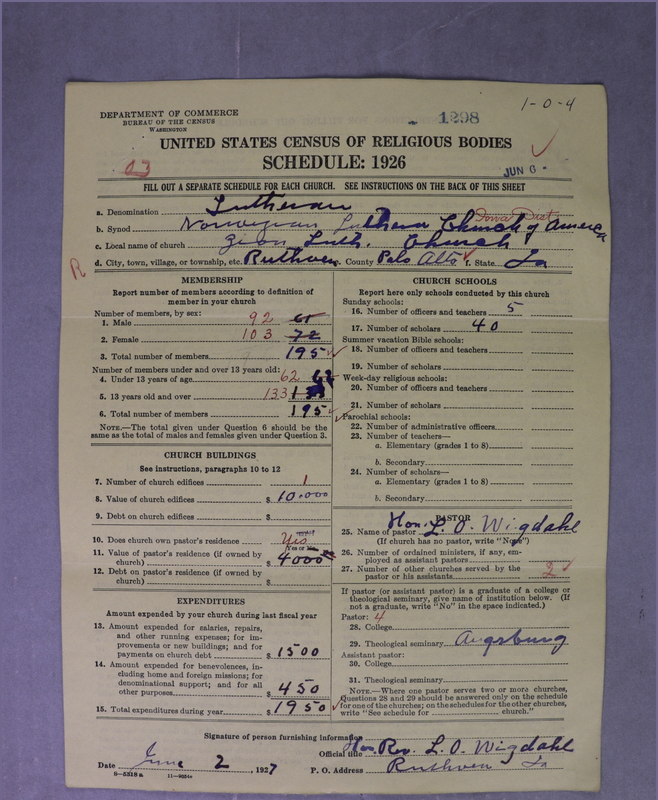 1-0-4
DEPARTMENT OF COMMERCE
BUREAU OF THE CENSUS
WASHINGTON
1298
UNITED STATES CENSUS OF RELIGIOUS BODIES
SCHEDULE: 1926
03
JUN 6 -
FILL OUT A SEPARATE SCHEDULE FOR EACH CHURCH. SEE INSTRUCTIONS ON THE BACK OF THIS SHEET
a. Denomination Lutheran
Iowa Dist
b. Synod Norwegian Luthern Church of America
c. Local name of church Zion Luth. Church
d. City, town, village, or township, etc. Ruthven e. County Palo Alto f. State Ia
R
MEMBERSHIP
Report number of members according to definition of
member in your church
Number of members, by sex:
1. Male 92 61
2. Female 103 72
3. Total number of members 195
Number of members under and over 13 years old:
4. Under 13 years of age 62
5. 13 years old and over 133
6. Total number of members 195
NOTE.—The total given under Question 6 should be
same as the total of males and females given under Question 3.
CHURCH BUILDINGS
See instructions, paragraphs 10 to 12
7. Number of church edifices 1
8. Value of church edifices $ 10.000
9. Debt on church edifices $
10. Does church own pastor's residence Yes
Yes or No
11. Value of pastor's residence (if owned by
church) $ 4000
12. Debt on pastor's residence (if owned by
church) $
EXPENDITURES
Amount expended by your church during last fiscal year
13. Amount expended for salaries, repairs,
and other running expenses; for im-
provements or new buildings; and for
payments on church debt $ 1500
14. Amount expended for benevolences, in-
cluding home and foreign missions; for
denominational support; and for all
other purposes $ 450
15. Total expenditures during year $ 1950
CHURCH SCHOOLS
Report here only schools conducted by this church
Sunday schools:
16. Number of officers and teachers 5
17. Number of scholars 40
Summer vacation Bible schools:
18. Number of officers and teachers
19. Number of scholars
Week-day religious schools:
20. Number of officers and teachers
21. Number of scholars
Parochial schools:
22. Number of administrative officers
23. Number of teachers—
a. Elementary (grades 1 to 8)
b. Secondary
24. Number of scholars—
a. Elementary (grades 1 to 8)
b. Secondary
PASTOR
25. Name of pastor Hon. L. O. Wigdahl
(If church has no pastor, write "None")
26. Number of ordained ministers, if any, em-
ployed as assistant pastors
27. Number of other churches served by the
pastor or his assistants 2
If pastor (or assistant pastor) is a graduate of a college or
theological seminary, give name of institution below. (If
not a graduate, write "No" in the space indicated.)
Pastor: 4
28. College
29. Theological seminary Augsburg
Assistant pastor:
30. College
31. Theological seminary
NOTE.—Where one pastor serves two or more churches,
Questions 28 and 29 should be answered only on the schedule
for one of the churches; on the schedules for the other churches,
write "See schedule for church."
Signature of person furnishing information
Official title Hon. Rev. L. O. Wigdahl
Date June 2, 1927 P. O. Address Ruthven Ia